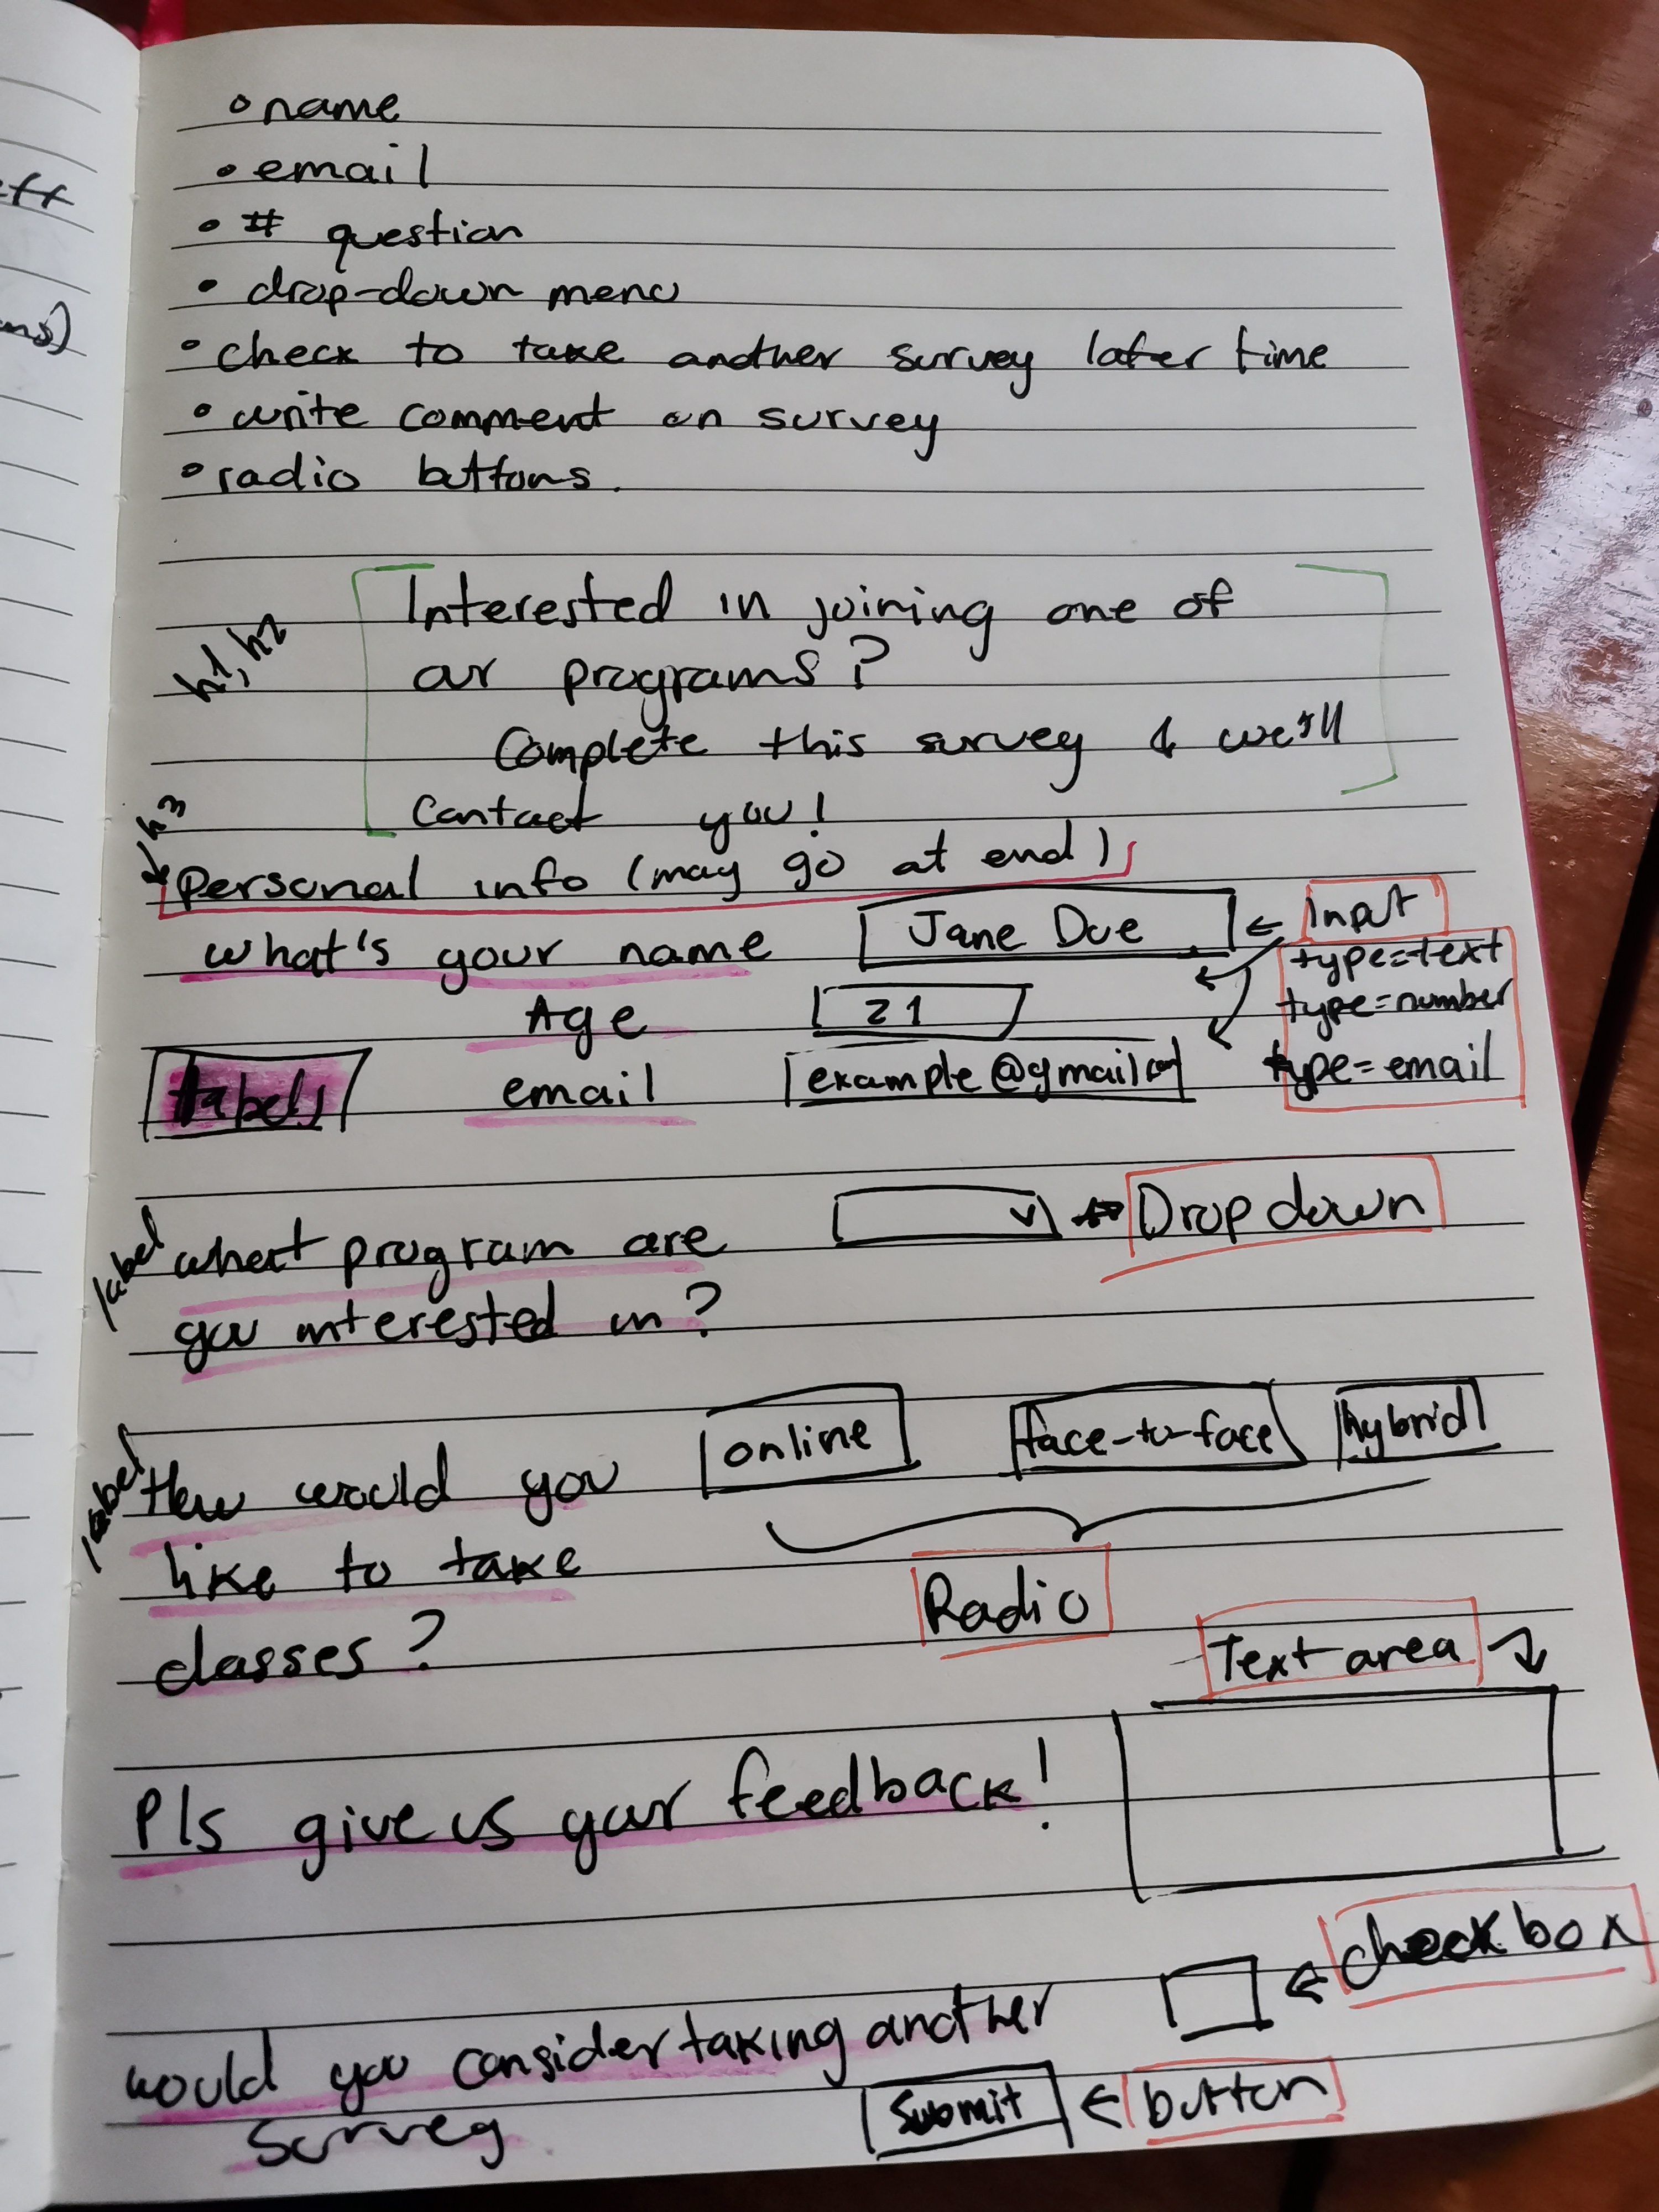 eff
ons)
• name
• email
• # question
• drop-down menu
• check to take another survey later time
• write comment on survey
• radio buttons.
Interested in joining one of
our programs?
h1, h2
Complete this survey & we'll
contact you!
h3
Personal info (may go at end)
what's your name Jane Doe ← input
type=text
Age 21 type=number
labels email example@gmail.com type=email
label what program are Dropdown
you interested in?
label How would you online face-to-face hybrid
like to take Radio
classes? Text area
Pls give us your feedback!
checkbox
would you consider taking another
survey Submit ← button